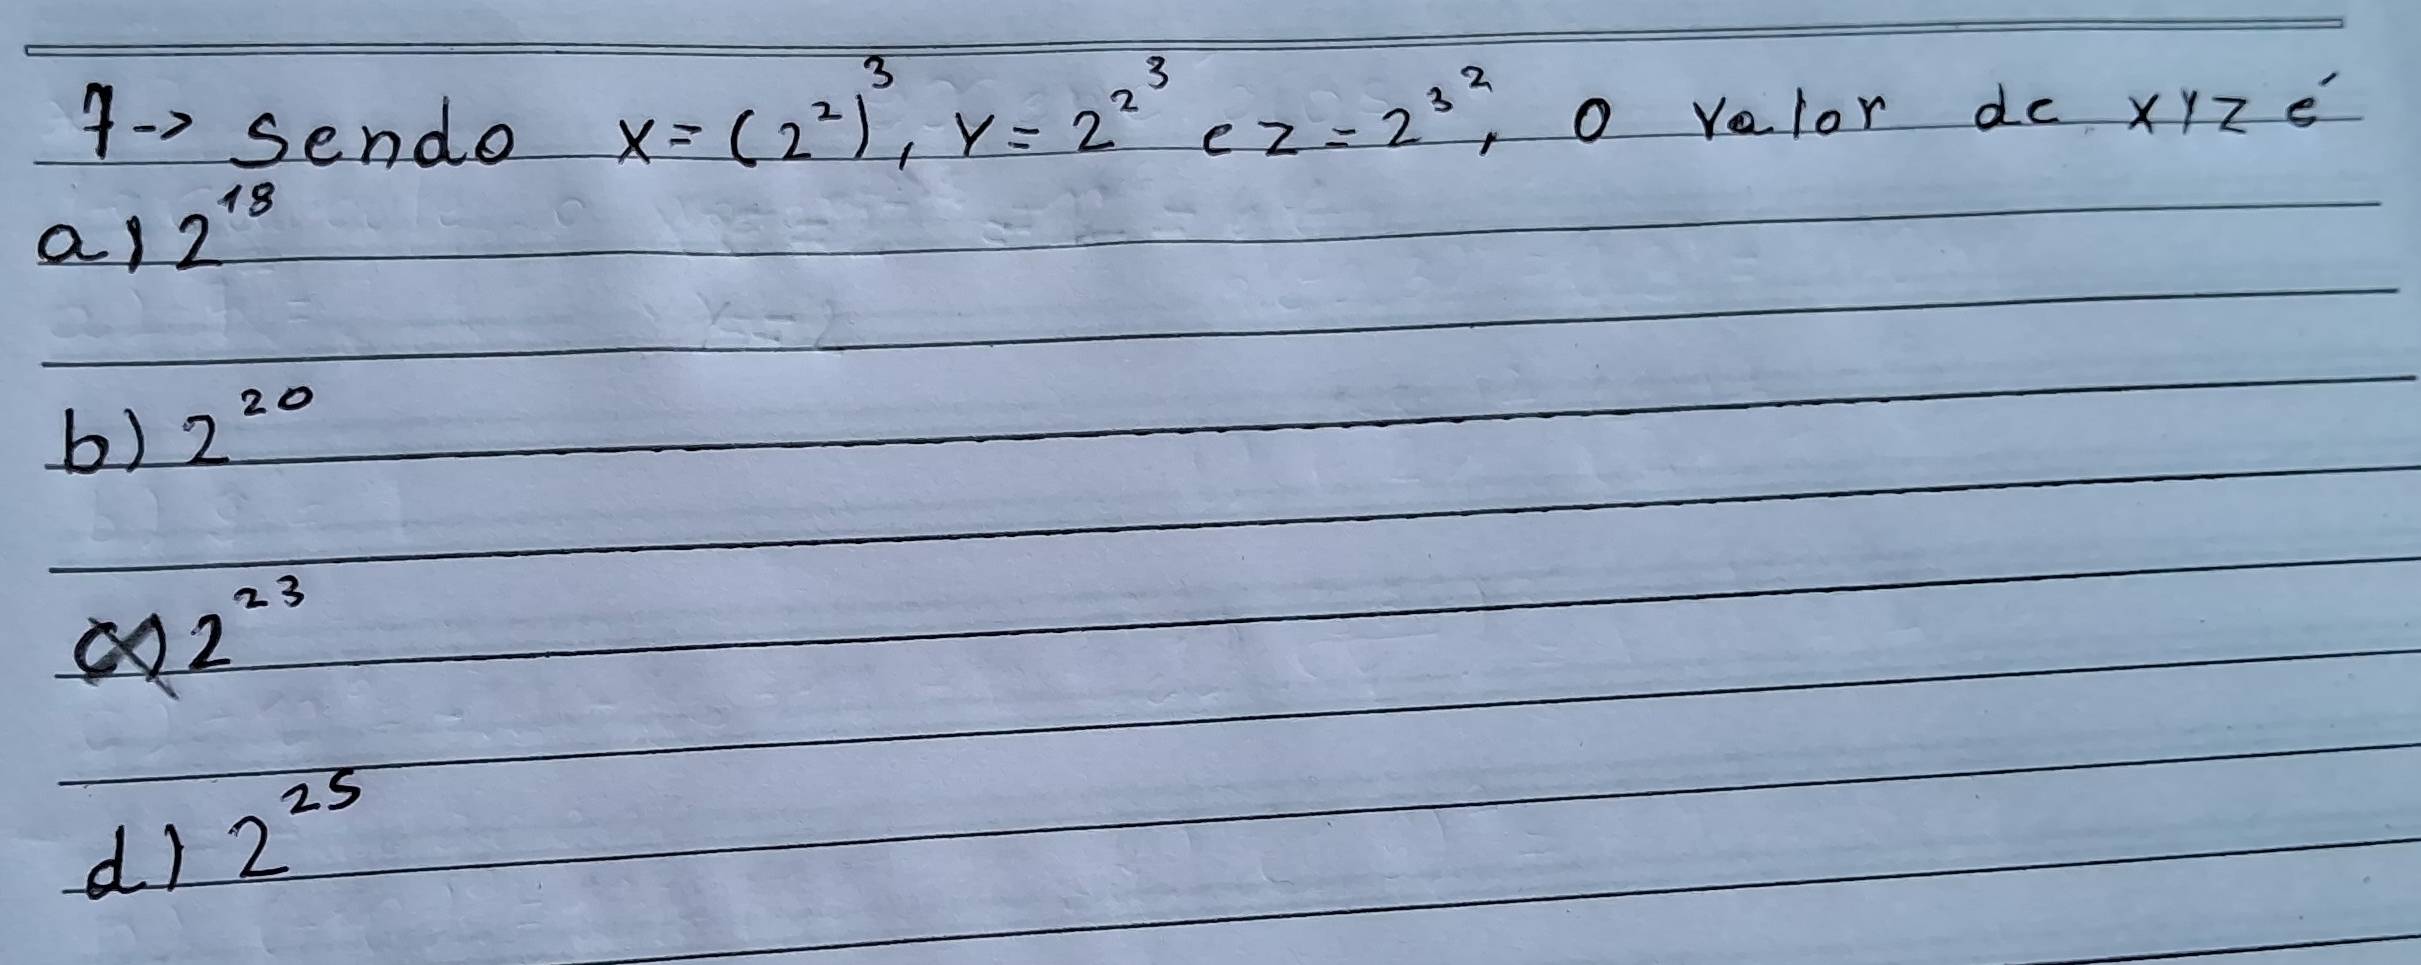 7-> Sendo x = (2²)³, Y = 2^2^3 e z = 2^3^2, o valor de xyz é
a) 2¹⁸
b) 2²⁰
c) 2²³
d) 2²⁵